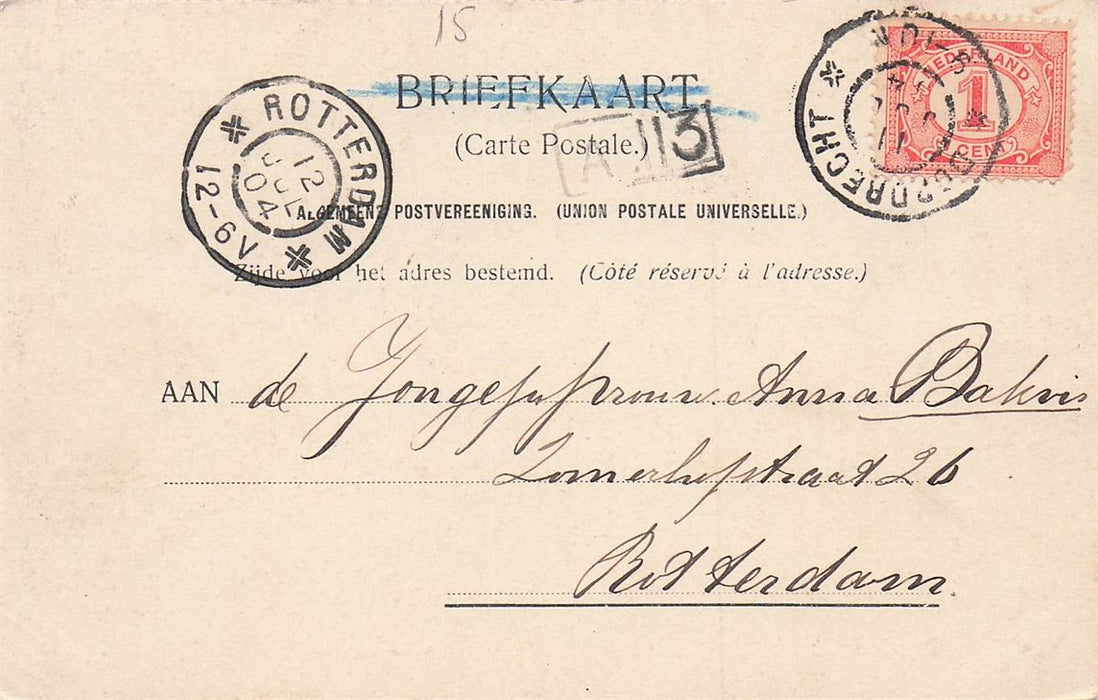 15
BRIEFKAART
(Carte Postale.)
A 3
ALGEMEENE POSTVEREENIGING. (UNION POSTALE UNIVERSELLE.)
Zijde voor het adres bestemd. (Côté réservé à l'adresse.)
ROTTERDAM
12 JUL 04
12-6V
DORDRECHT
NEDERLAND
1
CENT
AAN de Jongejufvrouw Anna Bakvis
Zomerhofstraat 26
Rotterdam